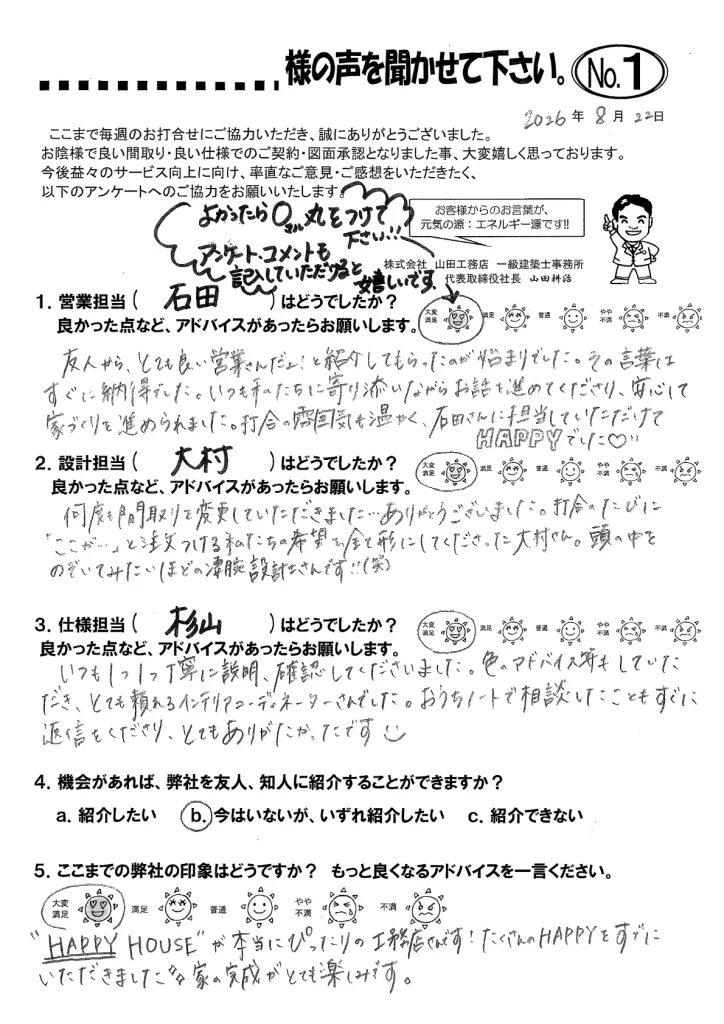 様の声を聞かせて下さい。 No.1
2026年 8月 22日
ここまで毎週のお打合せにご協力いただき、誠にありがとうございました。
お陰様で良い間取り・良い仕様でのご契約・図面承認となりました事、大変嬉しく思っております。
今後益々のサービス向上に向け、率直なご意見・ご感想をいただきたく、
以下のアンケートへのご協力をお願いいたします。
よかったら○で丸をつけて
下さい!!
アンケート・コメントも
記入していただけると
嬉しいです
お客様からのお言葉が、
元気の源：エネルギー源です!!
株式会社 山田工務店 一級建築士事務所
代表取締役社長 山田耕治
1. 営業担当（ 石田 ）はどうでしたか？
良かった点など、アドバイスがあったらお願いします。
大変満足 満足 普通 やや不満 不満
友人から、とても良い営業さんだよ!と紹介してもらったのが始まりでした。その言葉は
すぐに納得でした。いつも私たちに寄り添いながらお話を進めてくださり、安心して
家づくりを進められました。打合の雰囲気も温かく、石田さんに担当していただけて
HAPPYでした♡
2. 設計担当（ 大村 ）はどうでしたか？
良かった点など、アドバイスがあったらお願いします。
大変満足 満足 普通 やや不満 不満
何度も間取りを変更していただきました…ありがとうございました。打合のたびに
「ここが…」と注文つける私たちの希望を全て形にしてくださった大村さん。頭の中を
のぞいてみたいほどの凄腕設計士さんです!!(笑)
3. 仕様担当（ 杉山 ）はどうでしたか？
良かった点など、アドバイスがあったらお願いします。
大変満足 満足 普通 やや不満 不満
いつも1つ1つ丁寧に説明、確認してくださいました。色のアドバイス等もしていた
だき、とても頼れるインテリアコーディネーターさんでした。おうちノートで相談したこともすぐに
返信をくださり、とてもありがたかったです
4. 機会があれば、弊社を友人、知人に紹介することができますか？
a. 紹介したい b. 今はいないが、いずれ紹介したい c. 紹介できない
5. ここまでの弊社の印象はどうですか？ もっと良くなるアドバイスを一言ください。
大変満足 満足 普通 やや不満 不満
"HAPPY HOUSE"が本当にぴったりの工務店さんです!たくさんのHAPPYをすでに
いただきました 家の完成がとても楽しみです。